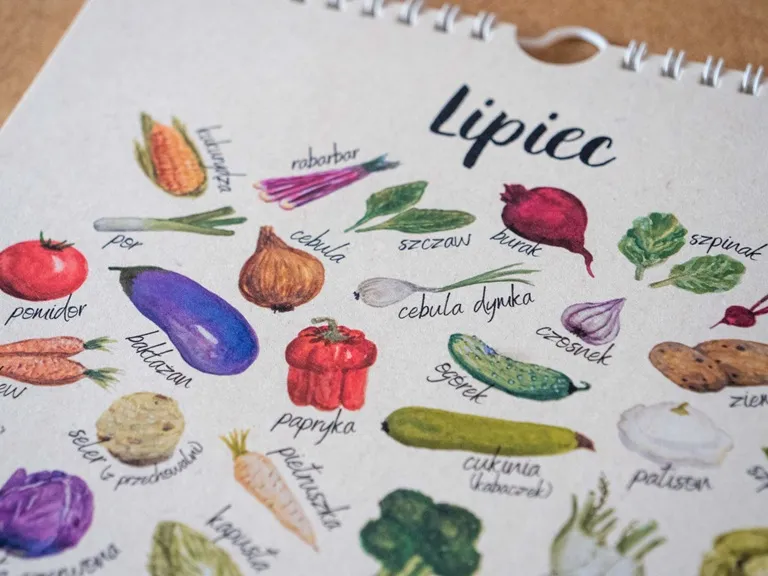 Lipiec
kukurydza
rabarbar
por
cebula
szczaw
burak
szpinak
pomidor
bakłażan
cebula dymka
czosnek
papryka
ogórek
seler (z przechowalni)
pietruszka
cukinia
(kabaczek)
patison
kapusta